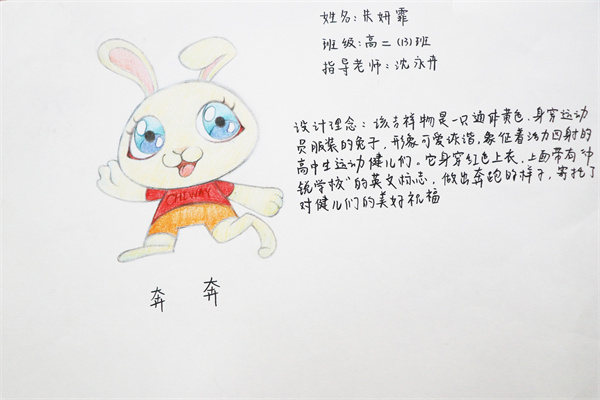 姓名：朱妍霏
班级：高二（13）班
指导老师：沈永升
设计理念：该吉祥物是一只通体黄色、身穿运动
员服装的兔子，形象可爱诙谐，象征着活力四射的
高中生运动健儿们。它身穿红色上衣，上面带有“中
锐学校”的英文标志，做出奔跑的样子，寄托了
对健儿们的美好祝福
CHIWAY
奔 奔